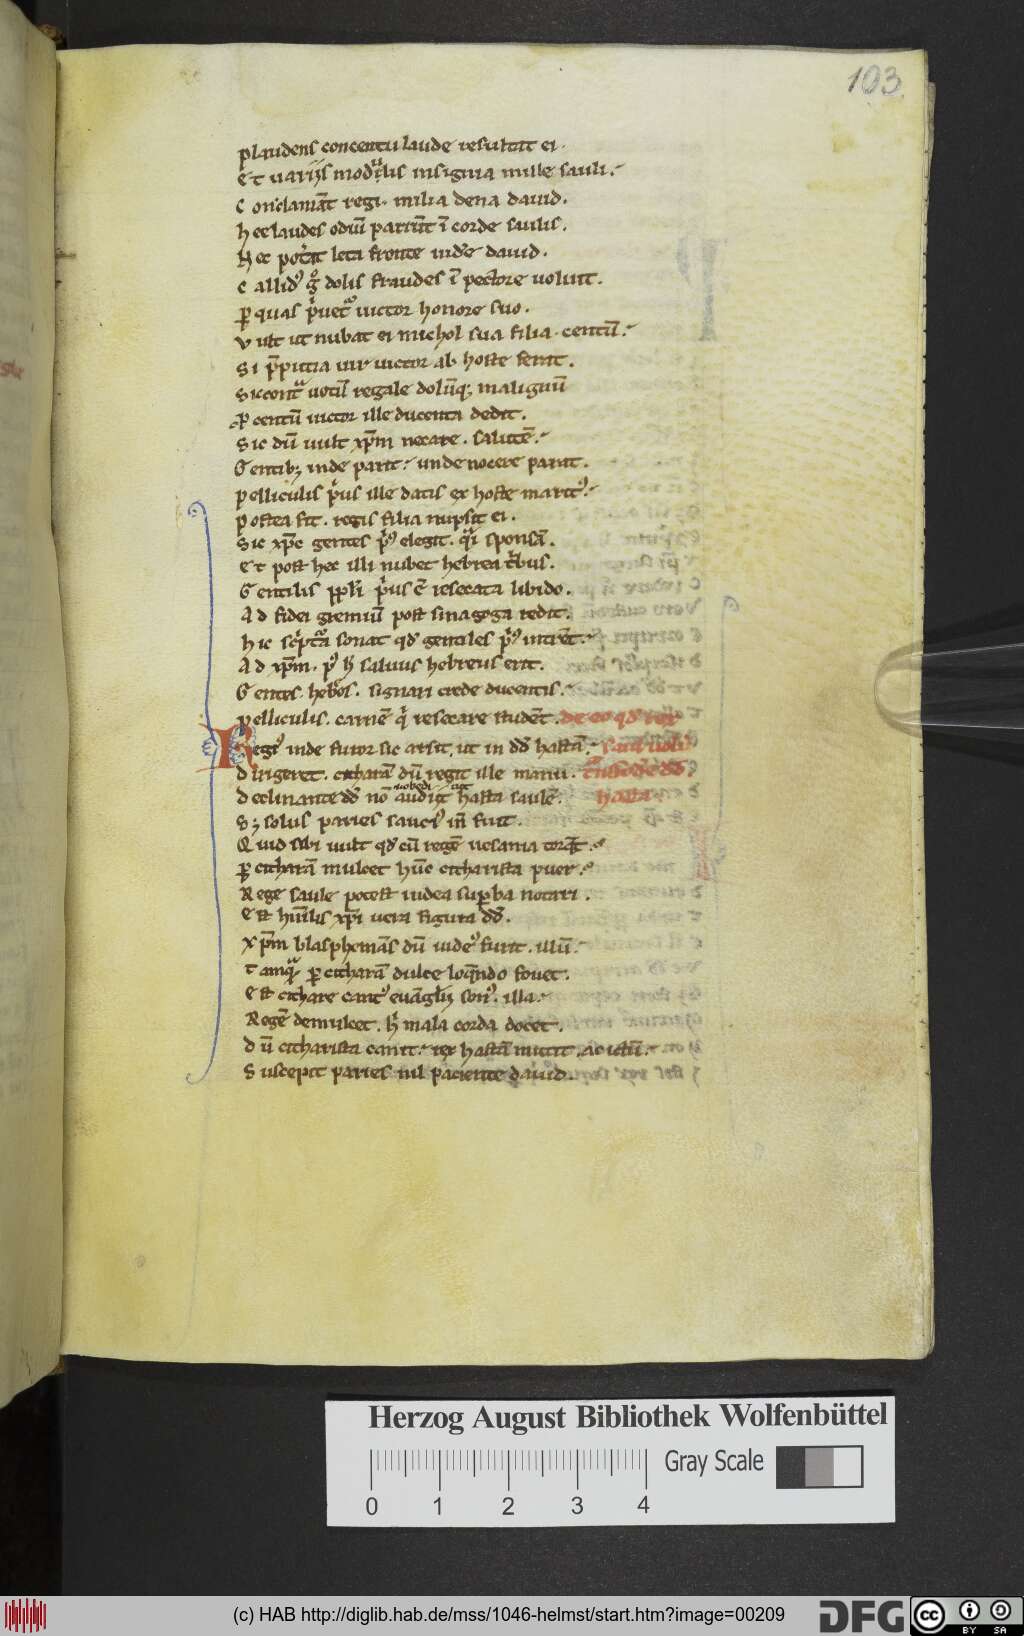 103
plaudens concentu laude resultat ei.
Et uariis mod'lis insignia mille sauli.
Conclamāt regi. milia dena dauid.
hec laudes odiū pariūt ī corde saulis.
Hec pot'it leta fronte uid'e dauid.
Callid' g° dolis fraudes ī pectore voluit.
ꝑ quas victor honore suo.
Vult ut nubat ei michol sua filia. centū.
Si p̄putia uir uictor ab hoste ferat.
Sic cont uotū regale dolūq; malignū
ꝓ centū uictor ille ducenta dedit.
Sic dū uult xp̄m necare. salutē.
Gentib; inde parit. unde nocere parat.
pelliculis p'us ille datis ex hoste marit'.
postea fit. regis filia nupsit ei.
Sic xp̄c gentes p'' elegit. q'i sponsā.
Et post hec illi nubet hebrea t'bus.
Gentilis pp'li p'us ē resecata libido.
Ad fidei gremiū post sinagoga redit.
hic sc'pt'a sonat qd' gentiles p'' intrēt.
Ad xp̄m. p' h' saluus hebreus erit.
Gentes. heb'os. signari crede ducentis.
pelliculis. carnē q' resecare studēt. de eo qd' rex
Regis inde furor sic arsit. ut in dd̄ hastā. saul uoluit
dirigeret. citharā dū regit ille manu. dd̄.
declinante dd̄ nō audiit hasta saulē. hasta
S; solus paries sauci' īn fuit.
Quid sibi uult qd' cū regē uesania torq̄t.
ꝑ citharā mulcet hūc citharista puer.
Rege saule potest iudea suꝑba notari.
Est hūilis xp̄i uera figura dd̄.
Xp̄m blasphemās dū iude' furit. illū.
Tamq ꝑ citharā dulce loq̄ndo fouet.
Est cithare cant' euāglii son'. illa.
Regē demulcet. h' mala corda docet.
dū citharista canit. rex hastā mittit. ac ictū.
Suscepit paries nil paciente dauid.
Herzog August Bibliothek Wolfenbüttel
Gray Scale
0 1 2 3 4
(c) HAB http://diglib.hab.de/mss/1046-helmst/start.htm?image=00209
DFG
cc BY SA